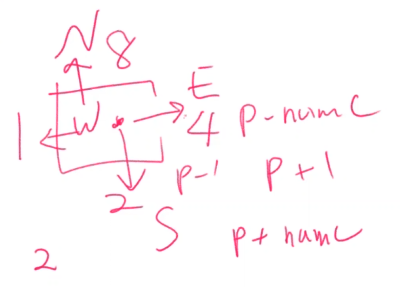 N 8
E
1 W 4 p-numc
p-1 p+1
2
S p+numc
2